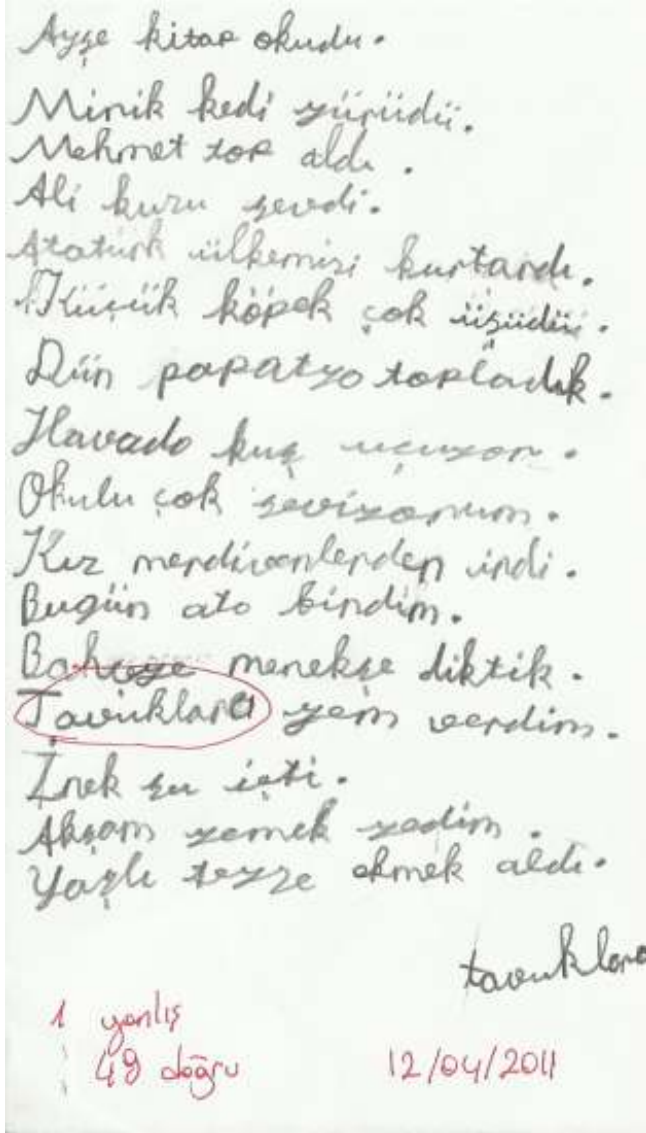 Ayşe kitap okudu.
Minik kedi yürüdü.
Mehmet top aldı.
Ali kuzu sevdi.
Atatürk ülkemizi kurtardı.
Küçük köpek çok üşüdü.
Dün papatya topladık.
Havada kuş uçuyor.
Okulu çok seviyorum.
Kız merdivenlerden indi.
Bugün ata bindim.
Bahçeye menekşe diktik.
Tavuklara yem verdim.
İnek su içti.
Akşam yemek yedim.
Yaşlı teyze ekmek aldı.
tavuklara
1 yanlış
49 doğru 12/04/2011